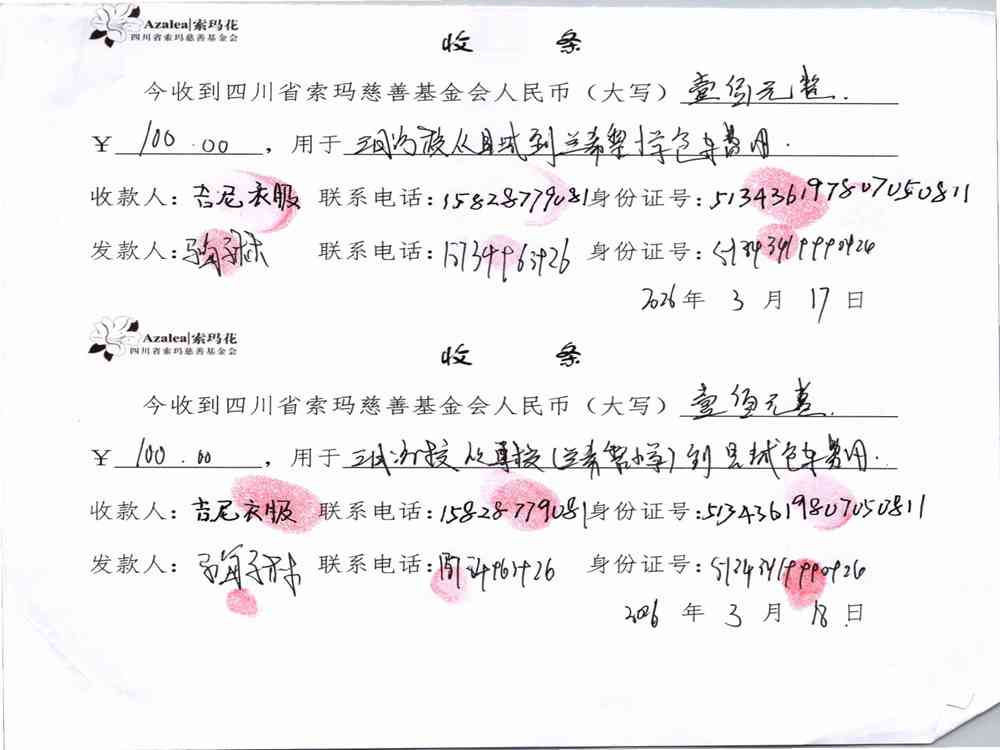 Azalea|索玛花
四川省索玛慈善基金会
收 条
今收到四川省索玛慈善基金会人民币（大写）壹佰元整.
￥ 100.00 ，用于 校从县城到兰希望小学包车费用.
收款人：吉尼衣服 联系电话：15828779081 身份证号：513436197807050811
发款人： 联系电话： 身份证号：
2026年 3 月 17 日
Azalea|索玛花
四川省索玛慈善基金会
收 条
今收到四川省索玛慈善基金会人民币（大写）壹佰元整.
￥ 100.00 ，用于 校从 校(兰希望小学)到县城包车费用.
收款人：吉尼衣服 联系电话：15828779081 身份证号：51343619807050811
发款人： 联系电话： 身份证号：
2026 年 3 月 18 日